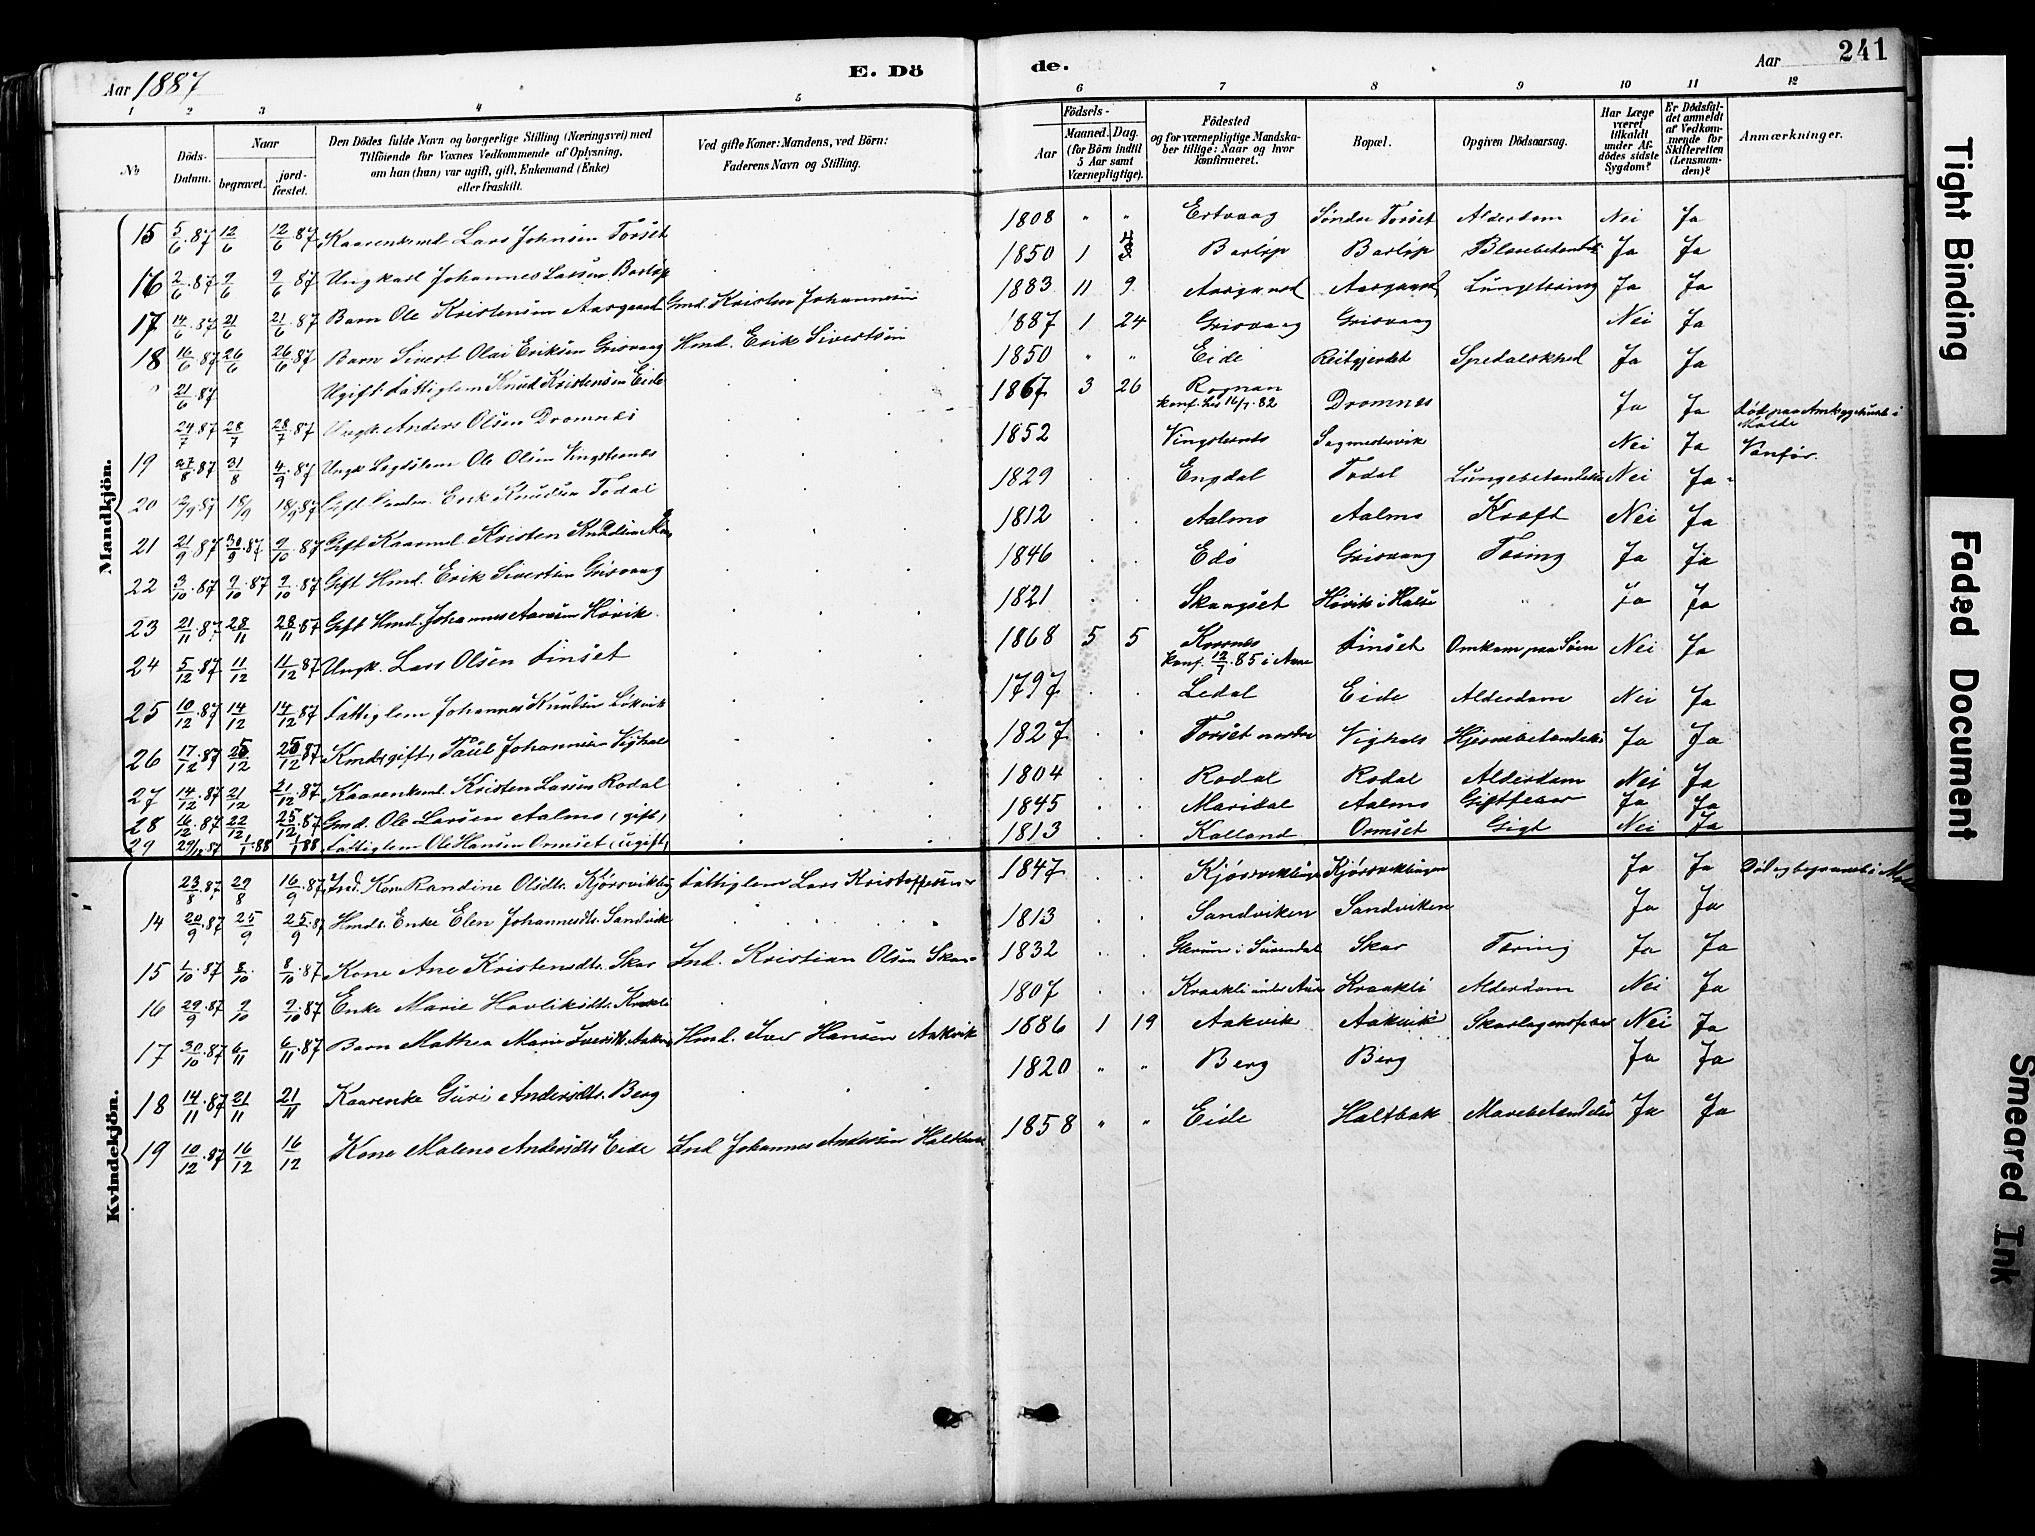 Aar 1887
E. Dö
de.
Aar
241
1 2 3 4 5 6 7 8 9 10 11 12
No
Döds-Datum.
Naar
begravet.
jordfæstet.
Den Dödes fulde Navn og borgerlige Stilling (Næringsvei) med
Tilföiende for Voxnes Vedkommende af Oplysning,
om han (hun) var ugift, gift, Enkemand (Enke)
eller fraskilt.
Ved gifte Koner: Mandens, ved Börn:
Faderens Navn og Stilling.
Födsels-
Aar
Maaned. Dag.
(for Börn indtil
5 Aar samt
Værnepligtige).
Födested
og for værnepligtige Mandska-
ber tillige: Naar og hvor
konfirmeret.
Bopæl.
Opgiven Dödsaarsag.
Har Læge
været
tilkaldt
under Af-
dödes sidste
Sygdom?
Er Dödsfal-
det anmeldt
af Vedkom-
mende for
Skifteretten
(Lensman-
den)?
Anmærkninger.
Mandkjön.
15 5/6.87 12/6 12/6.87 Kaarenkmd Lars Johnsen Torset 1808 " " Ertvaag Söndre Torset Alderdom Nei Ja
16 2/6.87 9/6 9/6.87 Ungkarl Johannes Larsen Barlöp 1850 1 Barlöp Barlöp Ja Ja
17 14/6.87 21/6 21/6.87 Barn Ole Kristensen Aasgaard Gmd. Kristen Johannsen 1883 11 9 Aasgaard Aasgaard Ja Ja
18 16/6.87 26/6 26/6.87 Barn Sivert Olai Eriksen Grisvaag Hmd. Erik Sivertsen 1887 1 24 Grisvaag Grisvaag Nei Ja
21/6.87 Ugift Fattiglem Knud Kristensen Eide 1850 " " Eide Reitgjerdet Spedalskhed Ja Ja
24/7.87 28/7 28/7.87 Ungk. Anders Olsen Dromnes 1867 3 26 Rognan konf. 16/7.82 Dromnes Ja Ja
19 27/8.87 31/8 4/9.87 Ungk. Legdslem Ole Olsen Vingsternes 1852 Vingsternes Nei Ja Vanför.
20 12/9.87 18/9 18/9.87 Gift Erik Knudsen Todal 1829 Engdal Todal Lungebetændelse Nei Ja
21 21/9.87 30/9.87 9/10.87 Gift Kaarmd Kristen Knudsen 1812 Aalmo Aalmo Kræft Nei Ja
22 3/10.87 9/10.87 9/10.87 Gift Hmd. Erik Sivertsen Grisvaag 1846 Edö Grisvaag Tæring Ja Ja
23 21/11.87 28/11 28/11.87 Gift Hmd. Johannes Aansen Hövik 1821 Skangset Hövik i Halse " Ja Ja
24 5/12.87 11/12 11/12.87 Ungk. Lars Olsen Finset 1868 5 5 Korsnes konf. 12/7.85 i Aure Finset Omkom paa Söen Nei Ja
25 10/12.87 14/12 14/12.87 Fattiglem Johannes Knudsen Lökvik 1797 Ledal Eide Alderdom Nei Ja
26 17/12.87 25/12 25/12.87 Kmd, gift, Paul Johannesen Vighals 1827 Torset nordre Vighals Hjernebetændelse Ja Ja
27 14/12.87 21/12 21/12.87 Kaarenkmd Kristen Larsen Rodal 1804 Rodal Rodal Alderdom Nei Ja
28 16/12.87 22/12 25/12.87 Gmd. Ole Larsen Aalmo (gift) 1845 Maridal Aalmo Giftfeber Ja Ja
29 29/12.87 1/1.88 1/1.88 Fattiglem Ole Hansen Ormset (ugift) 1813 Kalland Ormset Gigt Nei Ja
Kvindekjön.
23/8.87 29/8 16/9.87 Ind. Kone Randine Olsdtr. Kjörsvikbugen Fattiglem Lars Kristoffersen 1847 Kjörsvikbugen Kjörsvikbugen Ja Ja
14 20/9.87 25/9 25/9.87 Hmds Enke Elen Johannesdtr. Sandvik 1813 Sandviken Sandviken Ja Ja
15 1/10.87 8/10 8/10.87 Kone Ane Kristensdtr. Skar Ind. Kristian Olsen Skar 1832 Glærum i Surendal Skar Tæring Ja Ja
16 29/9.87 9/10 9/10.87 Enke Marie Havliksdtr. Kraakli 1807 Kraakli Kraakli Alderdom Nei Ja
17 30/10.87 6/11 6/11.87 Barn Mathea Marie Iversdtr. Aakvik Hmd. Iver Hansen Aakvik 1886 1 19 Aakvik Aakvik Skarlagensfeber Nei Ja
18 14/11.87 21/11 21/11 Kaarenke Guri Andersdtr. Berg 1820 " " Berg Berg Ja Ja
19 10/12.87 16/12 16/12 Kone Malene Andersdtr Eide Ind Johannes Andersen Haltbak 1858 " " Eide Haltbak Mavebetændelse Ja Ja
Tight Binding
Faded Document
Smeared Ink